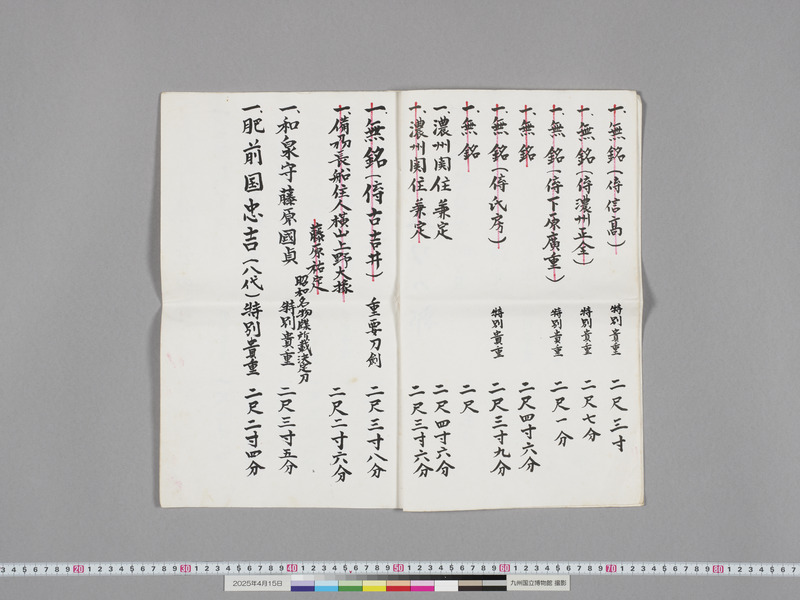 一、無銘(侍信高) 特別貴重 二尺三寸
一、無銘(侍濃州正全) 特別貴重 二尺七分
一、無銘(侍下原廣重) 特別貴重 二尺一分
一、無銘 二尺四寸六分
一、無銘(侍氏房) 特別貴重 二尺三寸九分
一、無銘 二尺
一、濃州関住兼定 二尺四寸六分
一、濃州関住兼定 二尺三寸六分
一、無銘(侍古吉井) 重要刀剣 二尺三寸八分
一、備州長船住人横山上野大掾 二尺二寸六分
藤原祐定
昭和名物
決定刀
一、和泉守藤原國貞 特別貴重 二尺三寸五分
一、肥前国忠吉(八代)特別貴重 二尺二寸四分
2025年4月15日
九州国立博物館 撮影